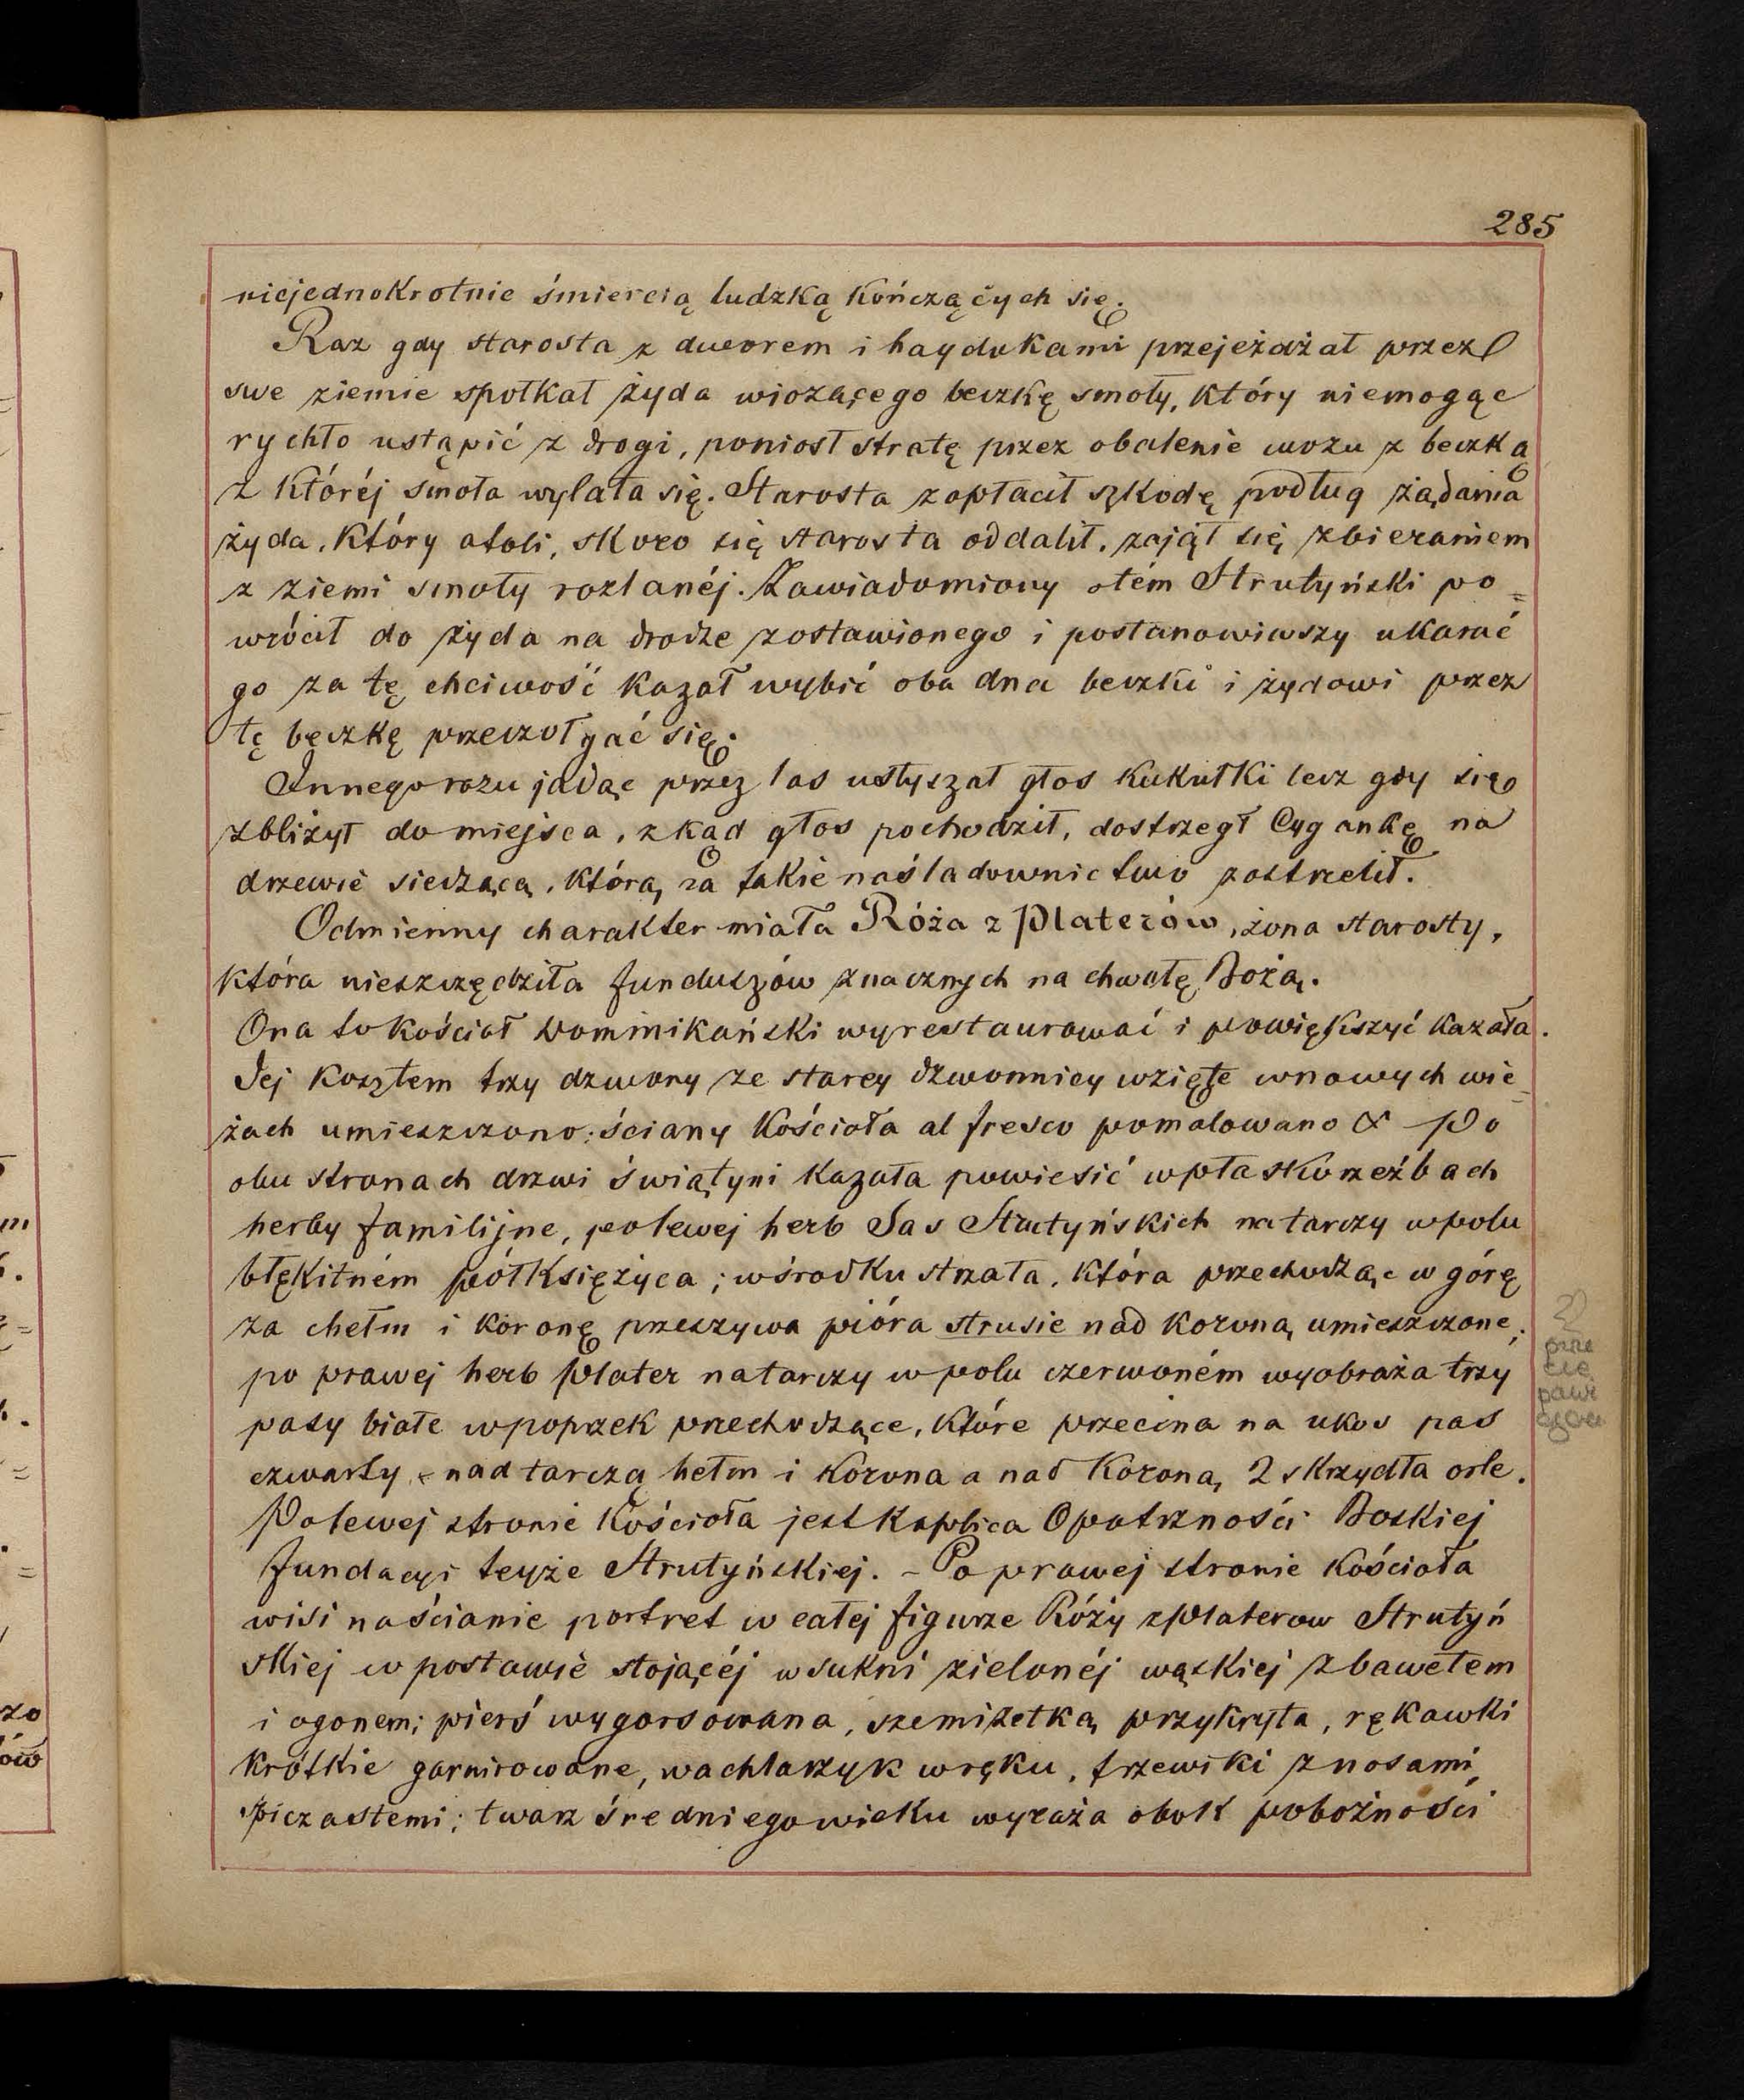 285
niejednokrotnie śmiercią ludzką kończących się.
Raz gdy starosta z dworem i haydukami przejeżdżał przez
swe ziemie spotkał żyda wiozącego beczkę smoły, który niemogąc
rychło ustąpić z drogi, poniósł stratę przez obalenie wozu z beczką
z któréj smoła wylała się. Starosta zapłacił szkodę podług żądania
żyda, który atoli, skoro się starosta oddalił, zajął się zbieraniem
z ziemi smoły rozlanéj. Zawiadomiony otém Strutyński po=
wrócił do żyda na drodze zostawionego i postanowiwszy ukarać
go za tę chciwość kazał wybić oba dna beczki i żydowi przez
tę beczkę przeczołgać się.
Innego razu jadąc przez las usłyszał głos kukułki lecz gdy się
zbliżył do miejsca, zkąd głos pochodził, dostrzegł Cygankę na
drzewie siedzącą, którą za takie naśladownictwo zastrzelił.
Odmienny charakter miała Róża z Platerów, żona starosty,
która nieszczędziła funduszów znacznych na chwałę Bożą.
Ona to kościoł Dominikański wyrestaurować i powiększyć kazała.
Jej kosztem trzy dzwony ze starey dzwonnicy wzięte wnowych wie=
żach umieszczono; ściany kościoła al fresco pomalowano & Po
obu stronach drzwi świątyni kazała powiesić wpłaskorzeźbach
herby familijne, polewej herb Sas Strutyńskich na tarczy wpolu
błękitném półksiężyca; wśrodku strzała, która przechodząc w górę
za chełm i koronę przeszywa pióra strusie nad koroną umieszczone;
po prawej herb Plater natarczy w polu czerwoném wyobraża trzy
pasy białe wpoprzek przechodzące, które przecina na ukos pas
czwarty - nad tarczą hełm i korona a nad koroną 2 skrzydła orle.
Polewej stronie kościoła jest kaplica Opatrzności Boskiej
fundacyi teyże Strutyńskiej. - Po prawej stronie kościoła
wisi naścianie portret w całej figurze Róży zPlaterow Strutyń
skiej w postawie stojącéj wsukni zielonéj wązkiej zbawetem
i ogonem; pierś wygorsowana, szemizetką przykryta, rękawki
krótkie garnirowane, wachlarzyk wręku, trzewiki znosami
spiczastemi; twarz średniego wieku wyraża obok pobożności